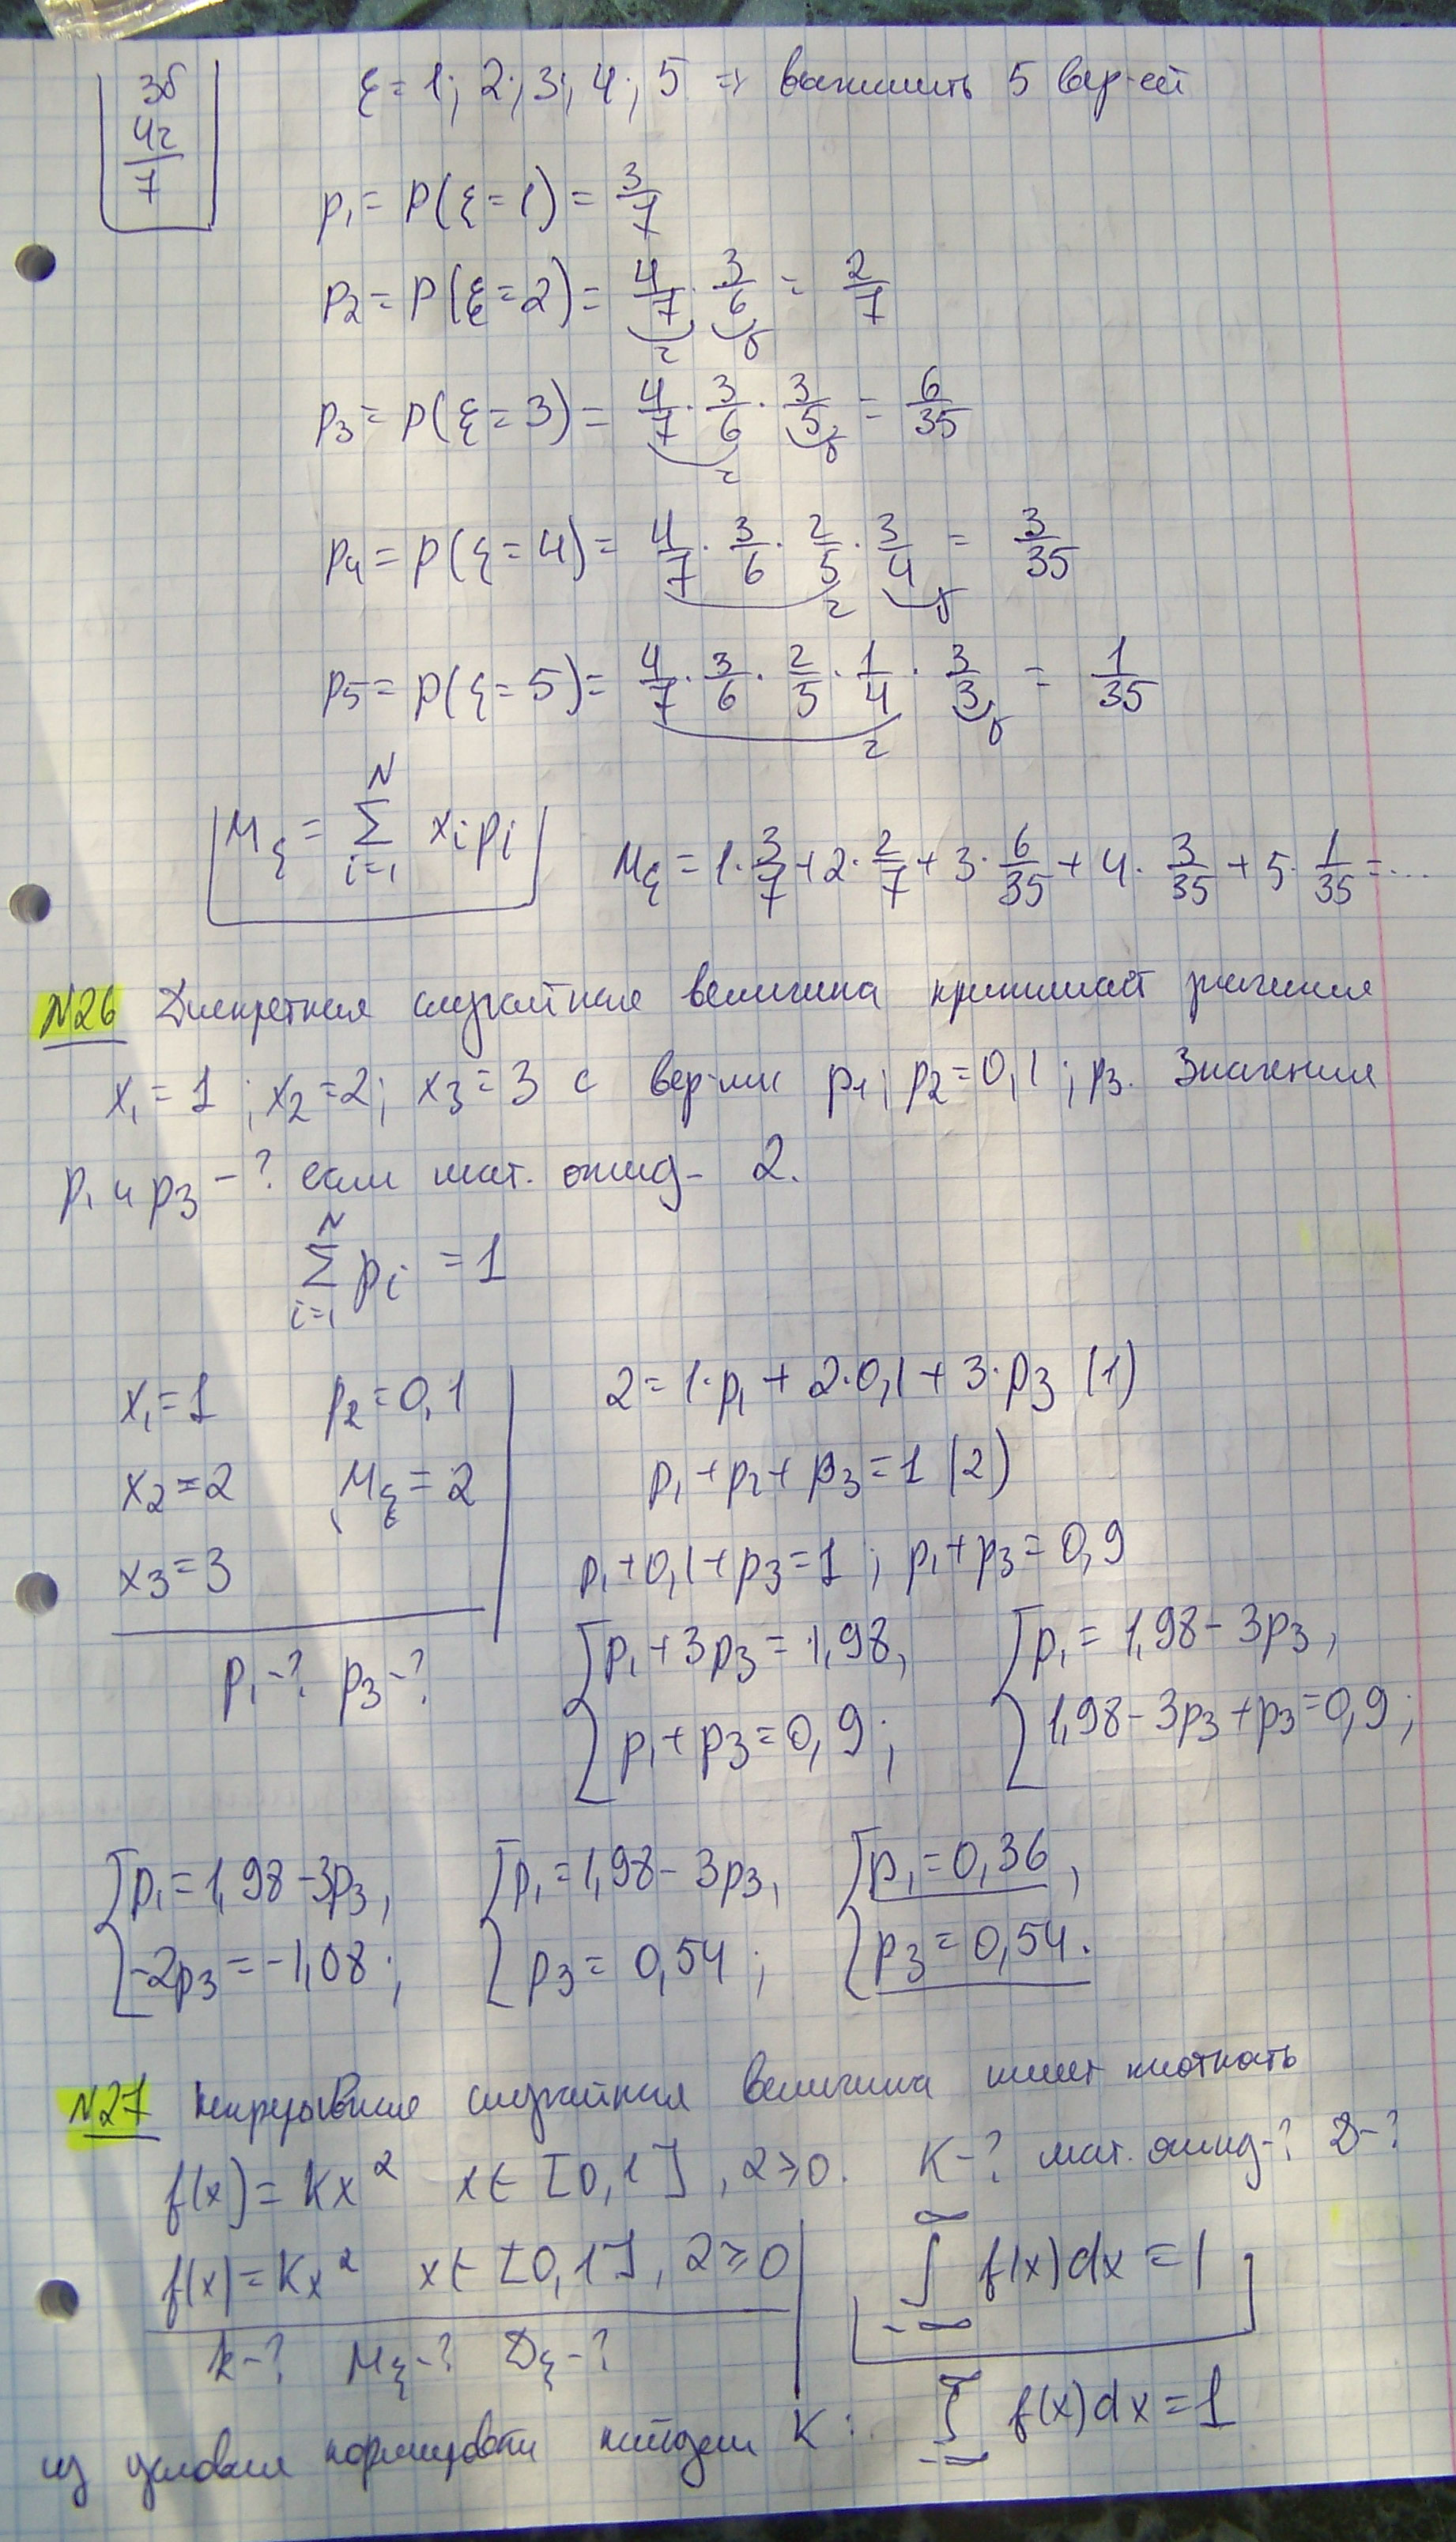 3б
4г
7
ξ = 1; 2; 3; 4; 5 ⇒ 5 вер-ей
p₁ = P(ξ = 1) = 3/7
p₂ = P(ξ = 2) = 4/7 · 3/6 = 2/7
г б
p₃ = P(ξ = 3) = 4/7 · 3/6 · 3/5 = 6/35
г б
p₄ = P(ξ = 4) = 4/7 · 3/6 · 2/5 · 3/4 = 3/35
г б
p₅ = P(ξ = 5) = 4/7 · 3/6 · 2/5 · 1/4 · 3/3 = 1/35
г б
Mξ = Σ_{i=1}^{N} xᵢpᵢ Mξ = 1·3/7 + 2·2/7 + 3·6/35 + 4·3/35 + 5·1/35 = ...
N26 Дискретная случайная величина принимает значения
x₁ = 1; x₂ = 2; x₃ = 3 с вер-ми p₁; p₂ = 0,1; p₃. Значения
p₁ и p₃ - ? если мат. ожид- 2.
Σ_{i=1}^{N} pᵢ = 1
x₁ = 1 p₂ = 0,1
x₂ = 2 Mξ = 2
x₃ = 3
p₁ - ? p₃ - ?
2 = 1·p₁ + 2·0,1 + 3·p₃ (1)
p₁ + p₂ + p₃ = 1 (2)
p₁ + 0,1 + p₃ = 1; p₁ + p₃ = 0,9
{p₁ + 3p₃ = 1,98, {p₁ = 1,98 - 3p₃,
p₁ + p₃ = 0,9; 1,98 - 3p₃ + p₃ = 0,9;
{p₁ = 1,98 - 3p₃, {p₁ = 1,98 - 3p₃, {p₁ = 0,36,
-2p₃ = -1,08; p₃ = 0,54; p₃ = 0,54.
N27 Непрерывная случайная величина имеет плотность
f(x) = Kx² x ∈ [0,1], 2 ≥ 0. K - ? мат. ожид - ? D - ?
f(x) = Kx² x ∈ [0,1], 2 ≥ 0
k - ? Mξ - ? Dξ - ?
∫_{-∞}^{∞} f(x)dx = 1
из условия нормировки найдем K: ∫_{-∞}^{∞} f(x)dx = 1